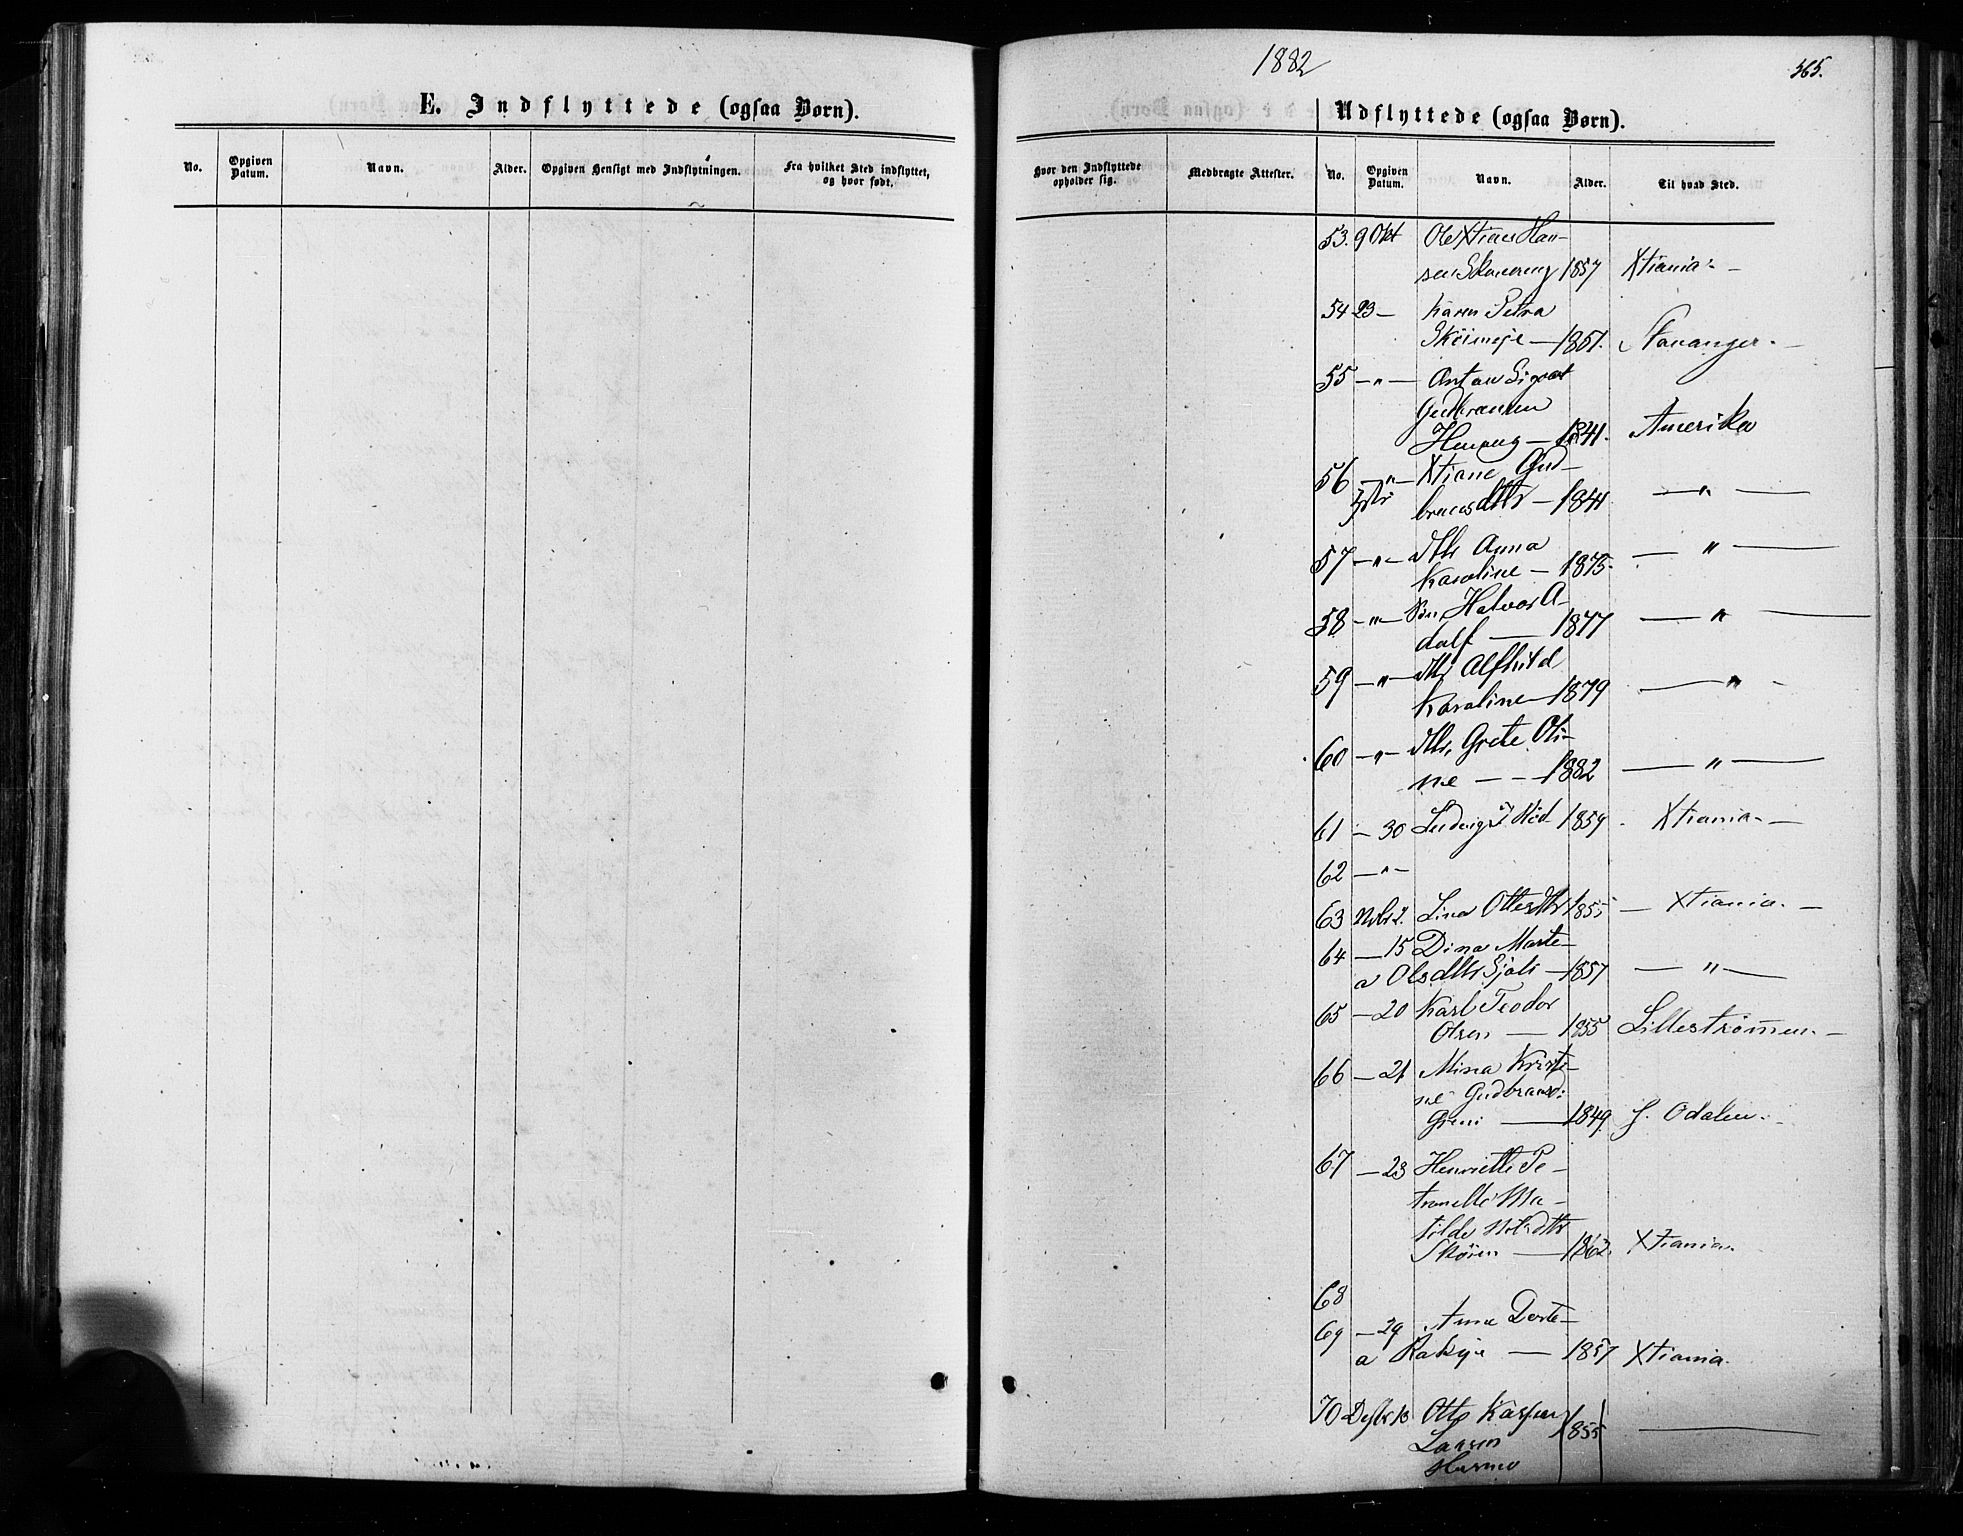 E. Indflyttede (ogsaa Børn).
No.
Opgiven Datum.
Navn.
Alder.
Opgiven Hensigt med Indflytningen.
Fra hvilket Sted indflyttet,
og hvor født.
1882
365.
Udflyttede (ogsaa Børn).
Hvor den Indflyttede
opholder sig.
Medbragte Attester.
No.
Opgiven Datum.
Navn.
Alder.
Til hvad Sted.
53. 9 Okt Ole Xtian Han-
sen 1857 Xtiania -
54 23 - Karen Petra
1857. Stavanger -
55 - " - Anton Sigvart
Gudbransen
1841. Amerika
56 - " - Xtiane Gud-
bransdttr - 1841 - " -
57 - " - dttr Anna
Karoline - 1875 - " -
58 - " - Søn Halvor A-
dolf - 1877 - " -
59 - " - dttr Alfhild
Karoline - 1879 - " -
60 - " - dttr, Grete Oli-
ne - - 1882 - " -
61 - 30 Ludvig 1859 - Xtiania -
62 - " -
63 Nvbr 2. Lina Ottesdttr 1855 - Xtiania -
64 - 15 Dina Marte-
a Olsdttr - 1857 - " -
65 - 20 Karl Teodor
Olsen - 1855 Lillestrømmen -
66 - 21 Mina Kristi-
ne Gudbransd:
Greni - 1849 S. Odalen -
67 - 23 Henriette Pe-
tronelle Ma-
tilde
Skøien - 1862. Xtiania.
68
69 - 29 Anne Dorte-
a - 1857 Xtiania.
70 Desbr 13 Otto Kasper
Larsen 1855 -